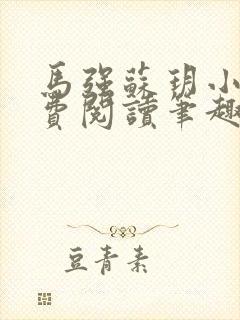 馬強蘇玥小
費閱讀筆趣
豆青素